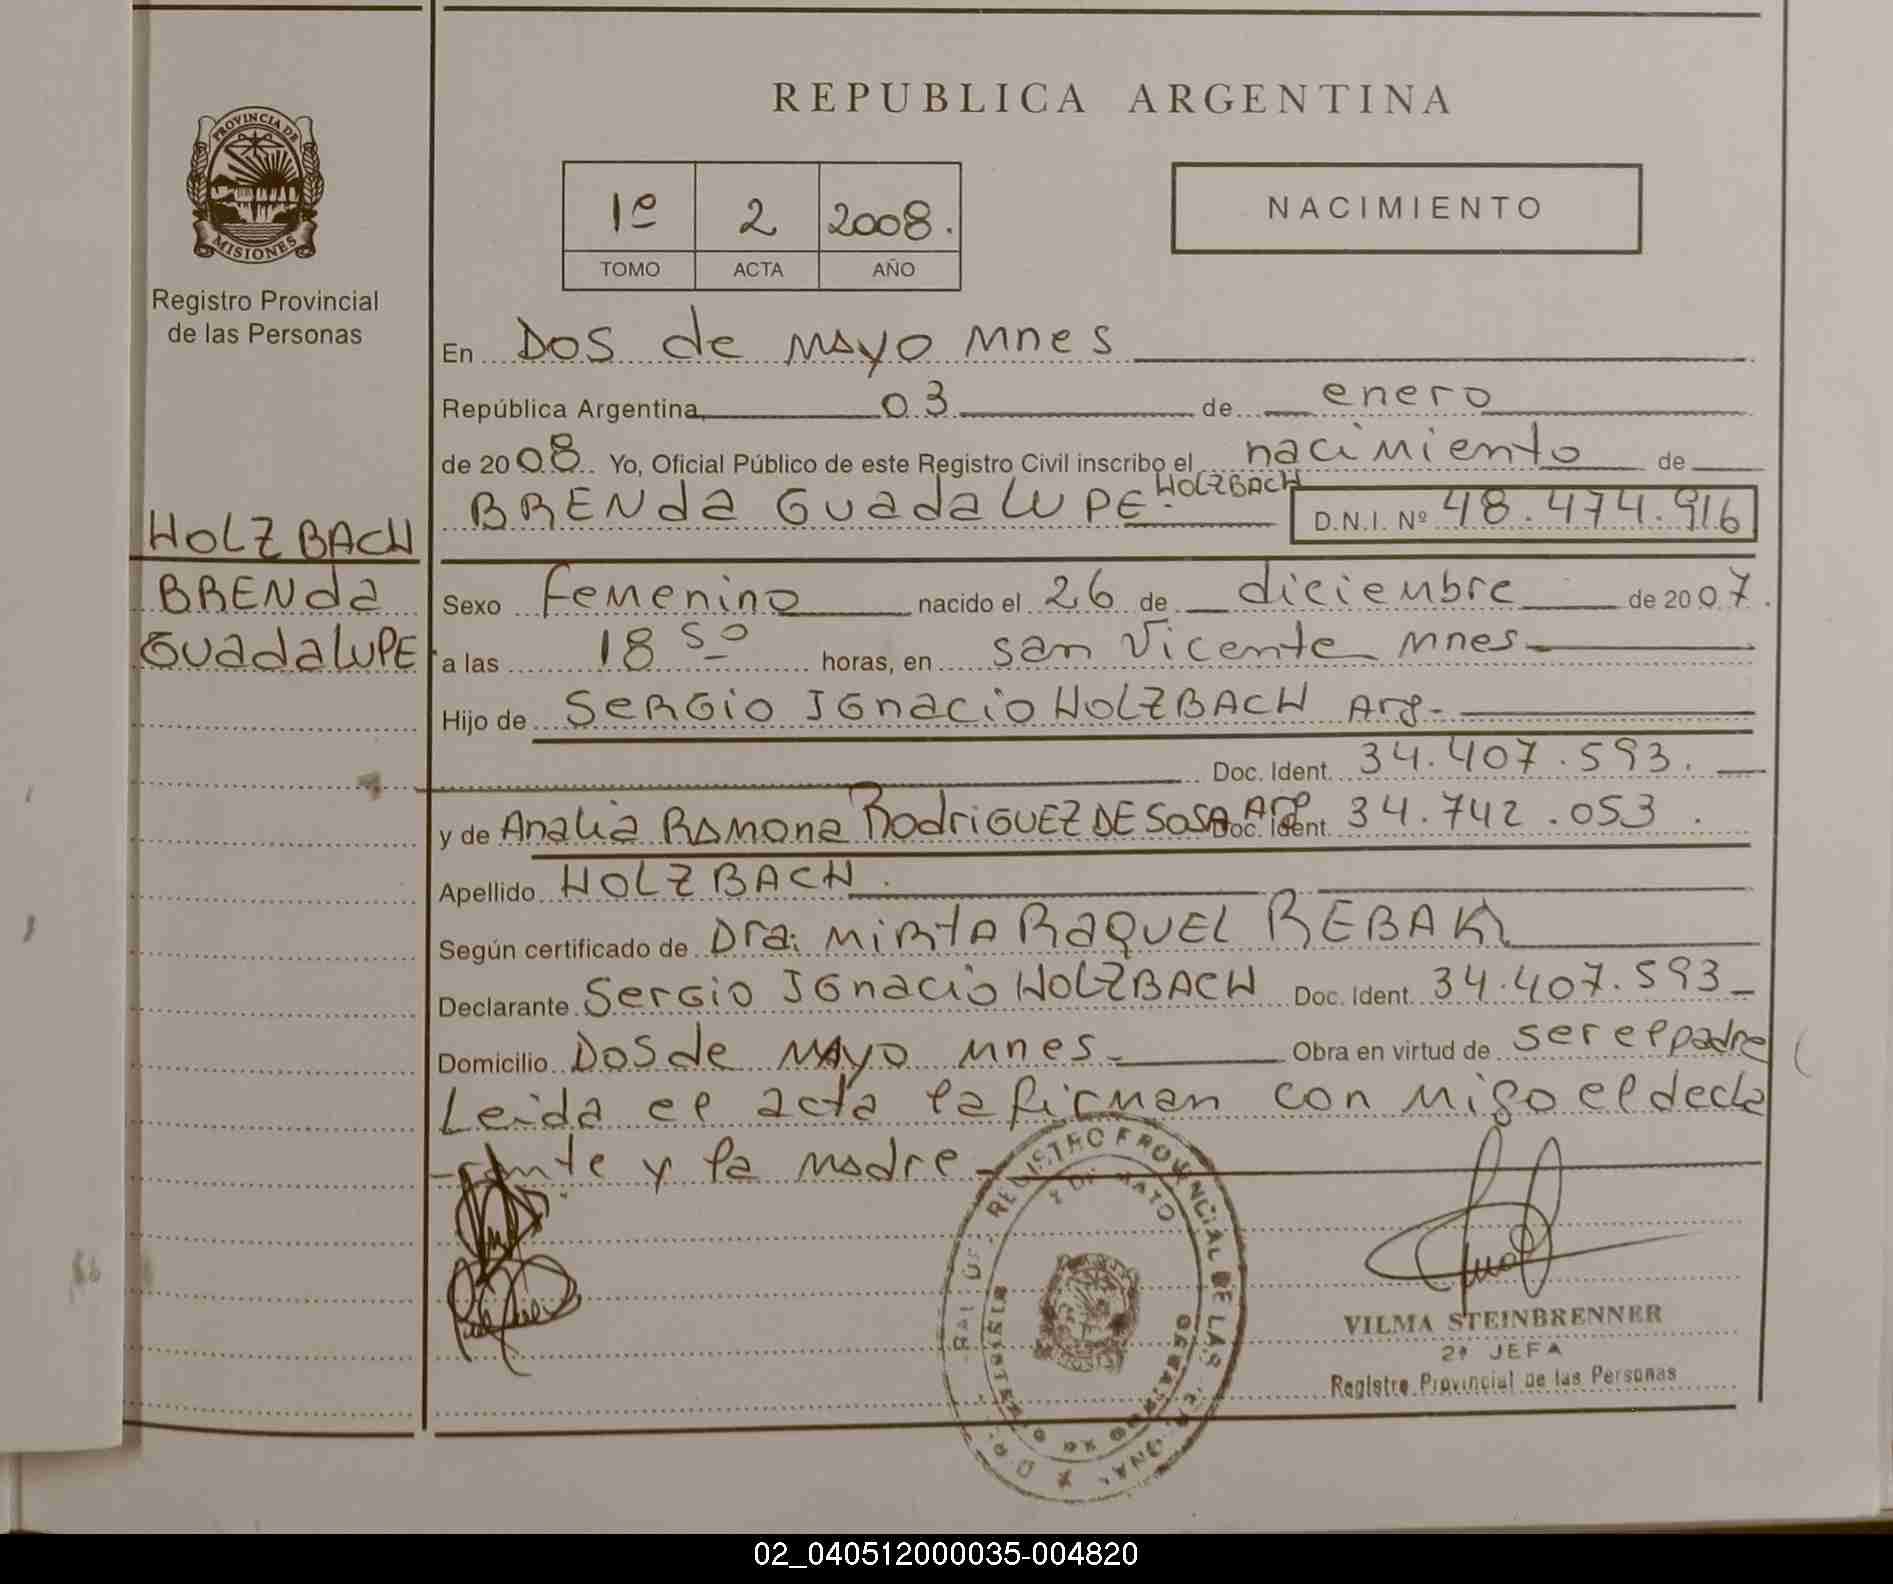 REPUBLICA ARGENTINA
PROVINCIA DE
MISIONES
Registro Provincial
de las Personas
1º 2 2008.
TOMO ACTA AÑO
NACIMIENTO
En Dos de Mayo Mnes
República Argentina, 03 de enero
de 2008 Yo, Oficial Público de este Registro Civil inscribo el nacimiento de
BRENda GuadaLUPE. HOLZBACH D.N.I. Nº 48.474.916
HOLZBACH
BRENda
GuadaLUPE
Sexo Femenino nacido el 26 de diciembre de 2007.
a las 18 50 horas, en san Vicente Mnes
Hijo de SeRGio IGnacio HOLZBACH Arg-
Doc. Ident. 34.407.593.
y de Analia Ramona RodriGUEZ DE SOSA Arg Doc. Ident. 34.742.053.
Apellido HOLZBACH.
Según certificado de Dra: MiRtA RaQUEL REBAK
Declarante SerGio IGnacio HOLZBACH Doc. Ident. 34.407.593
Domicilio Dos de Mayo Mnes. Obra en virtud de ser el padre
Leida el acta la firman con migo el decla
-rante y la madre
REGISTRO PROVINCIAL DE LAS
2 DE MAYO
VILMA STEINBRENNER
2ª JEFA
Registro Provincial de las Personas
02_040512000035-004820